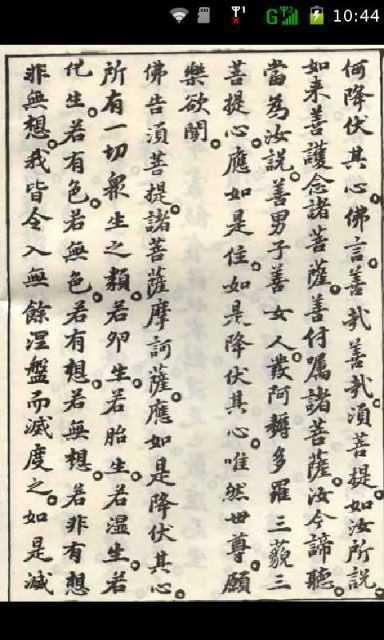 10:44
何降伏其心。佛言。善哉善哉。須菩提。如汝所說。
如来善護念諸菩薩。善付囑諸菩薩。汝今諦聽。
當為汝說。善男子善女人。發阿耨多羅三藐三
菩提心。應如是住。如是降伏其心。唯然世尊。願
樂欲聞。
佛告須菩提。諸菩薩摩訶薩。應如是降伏其心。
所有一切衆生之類。若卵生。若胎生。若湿生。若
化生。若有色。若無色。若有想。若無想。若非有想
非無想。我皆令入無餘涅盤而滅度之。如是滅